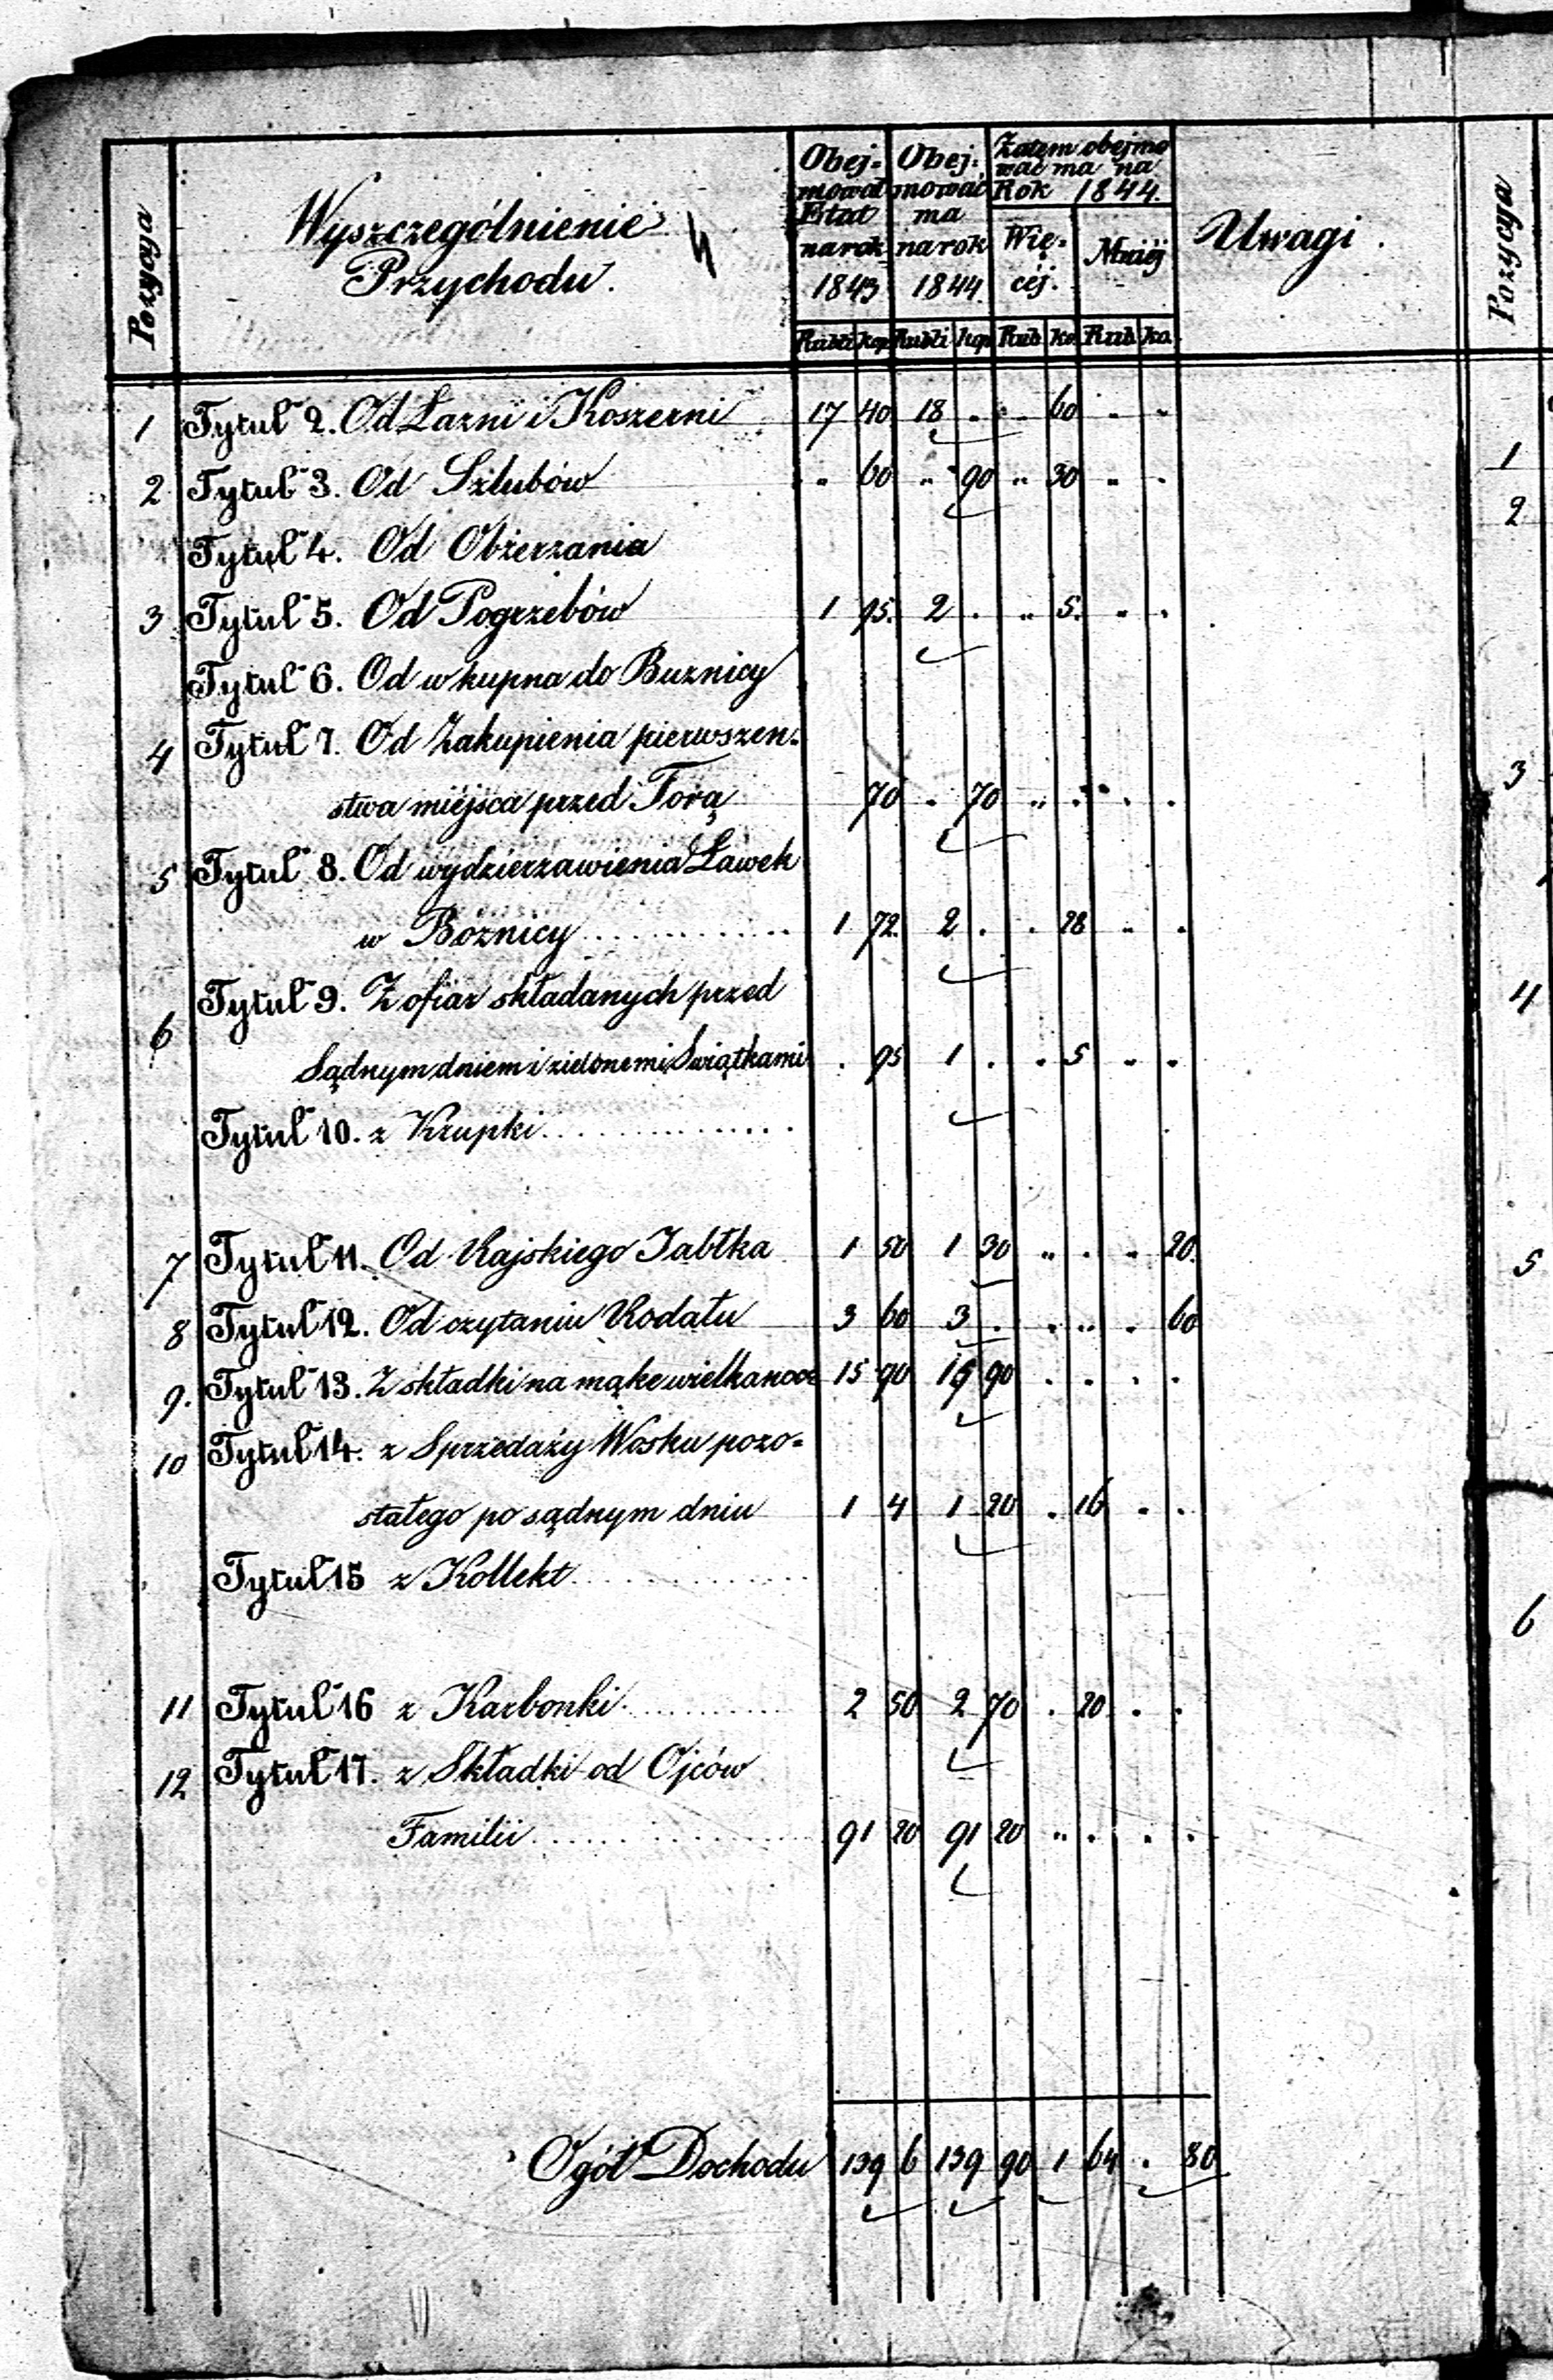 Pozycya
Wyszczególnienie
Przychodu.
Obej-
mował
Etat
na rok
1843
Obej-
mować
ma
na rok
1844.
Zatem obejmo
wać ma na
Rok 1844.
Wię-
céj.
Mniéj
Uwagi.
Pozycya
Rubli kop Rubli kop Rub ko Rub ko
1 Tytuł 2. Od Łazni i Koszerni 17 40 18 . . 60 . .
2 Tytuł 3. Od Szlubów „ 60 „ 90 „ 30 „ .
Tytuł 4. Od Obżerzania
3 Tytuł 5. Od Pogrzebów 1 95. 2 . „ 5. . .
Tytuł 6. Od wkupna do Buznicy
4 Tytuł 7. Od Zakupienia pierwszeń-
stwa miéjsca przed Torą 70 . 70 „ . . .
5 Tytuł 8. Od wydzierzawienia Ławek
w Bóżnicy 1 72. 2 . . 28 „ .
6 Tytuł 9. Z ofiar składanych przed
Sądnym dniem i zielonemi Swiątkami . 95 1 . . 5 „ .
Tytuł 10. z Krupki
7 Tytuł 11. Od Rajskiego Jabłka 1 50 1 30 „ . „ 20.
8 Tytuł 12. Od czytaniu Rodału 3 60 3 . . „ . 60
9. Tytuł 13. Z składki na mąke wielkanoc 15 90 15 90 . . . .
10 Tytuł 14. z Sprzedaży Wosku pozo-
stałego po sądnym dniu 1 4 1 20 . 16 . .
Tytuł 15 z Kollekt
11 Tytuł 16 z Karbonki 2 50 2 70 . 20 . .
12 Tytuł 17. z Składki od Ojców
Familii 91 20 91 20 „ . . .
Ogół Dochodu 139 6 139 90 1 64 . 80
1
2
3
4
5
6